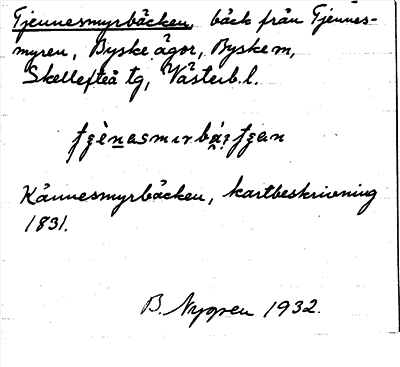 Tjennesmyrbäcken, bäck från Tjennes-
myren, Byske ägor, Byske sn,
Skellefteå tg, Västerb. l.
Kännesmyrbäcken, kartbeskrivning
1831.
B. Nygren 1932.